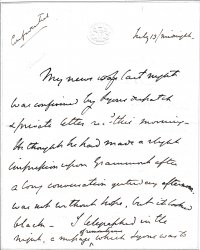 Confidential
July 13/midnight.
My news of last night
was confirmed by Lyons's despatch
& private letter rec^d this morning—
He thought he had made a slight
impression upon Grammont after
a long conversation yesterday afternoon,
was not without hope, but it looked
black— I telegraphed in the
night, a message, which Lyons was to